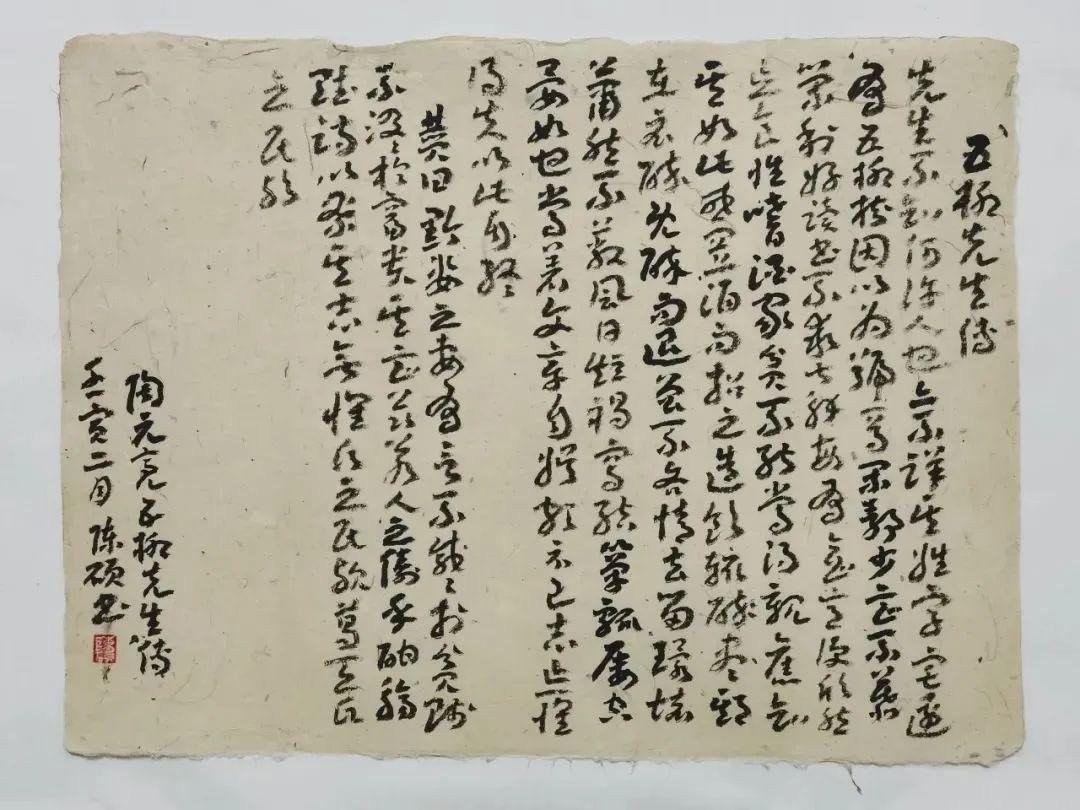 五柳先生傳
先生不知何許人也亦不詳其姓字宅邊
有五柳樹因以為號焉閑靜少言不慕
榮利好讀書不求甚解每有會意便欣然
忘食性嗜酒家貧不能常得親舊知
其如此或置酒而招之造飲輒醉盡期
在必醉既醉而退曾不吝情去留環堵
蕭然不蔽風日短褐穿結簞瓢屢空
晏如也常著文章自娛頗示己志忘懷
得失以此自終
贊曰黔婁之妻有言不戚戚於貧賤
不汲汲於富貴其言茲若人之儔乎酣觴
賦詩以樂其志無懷氏之民歟葛天氏
之民歟
陶元亮五柳先生傳
壬寅二月陈硕书